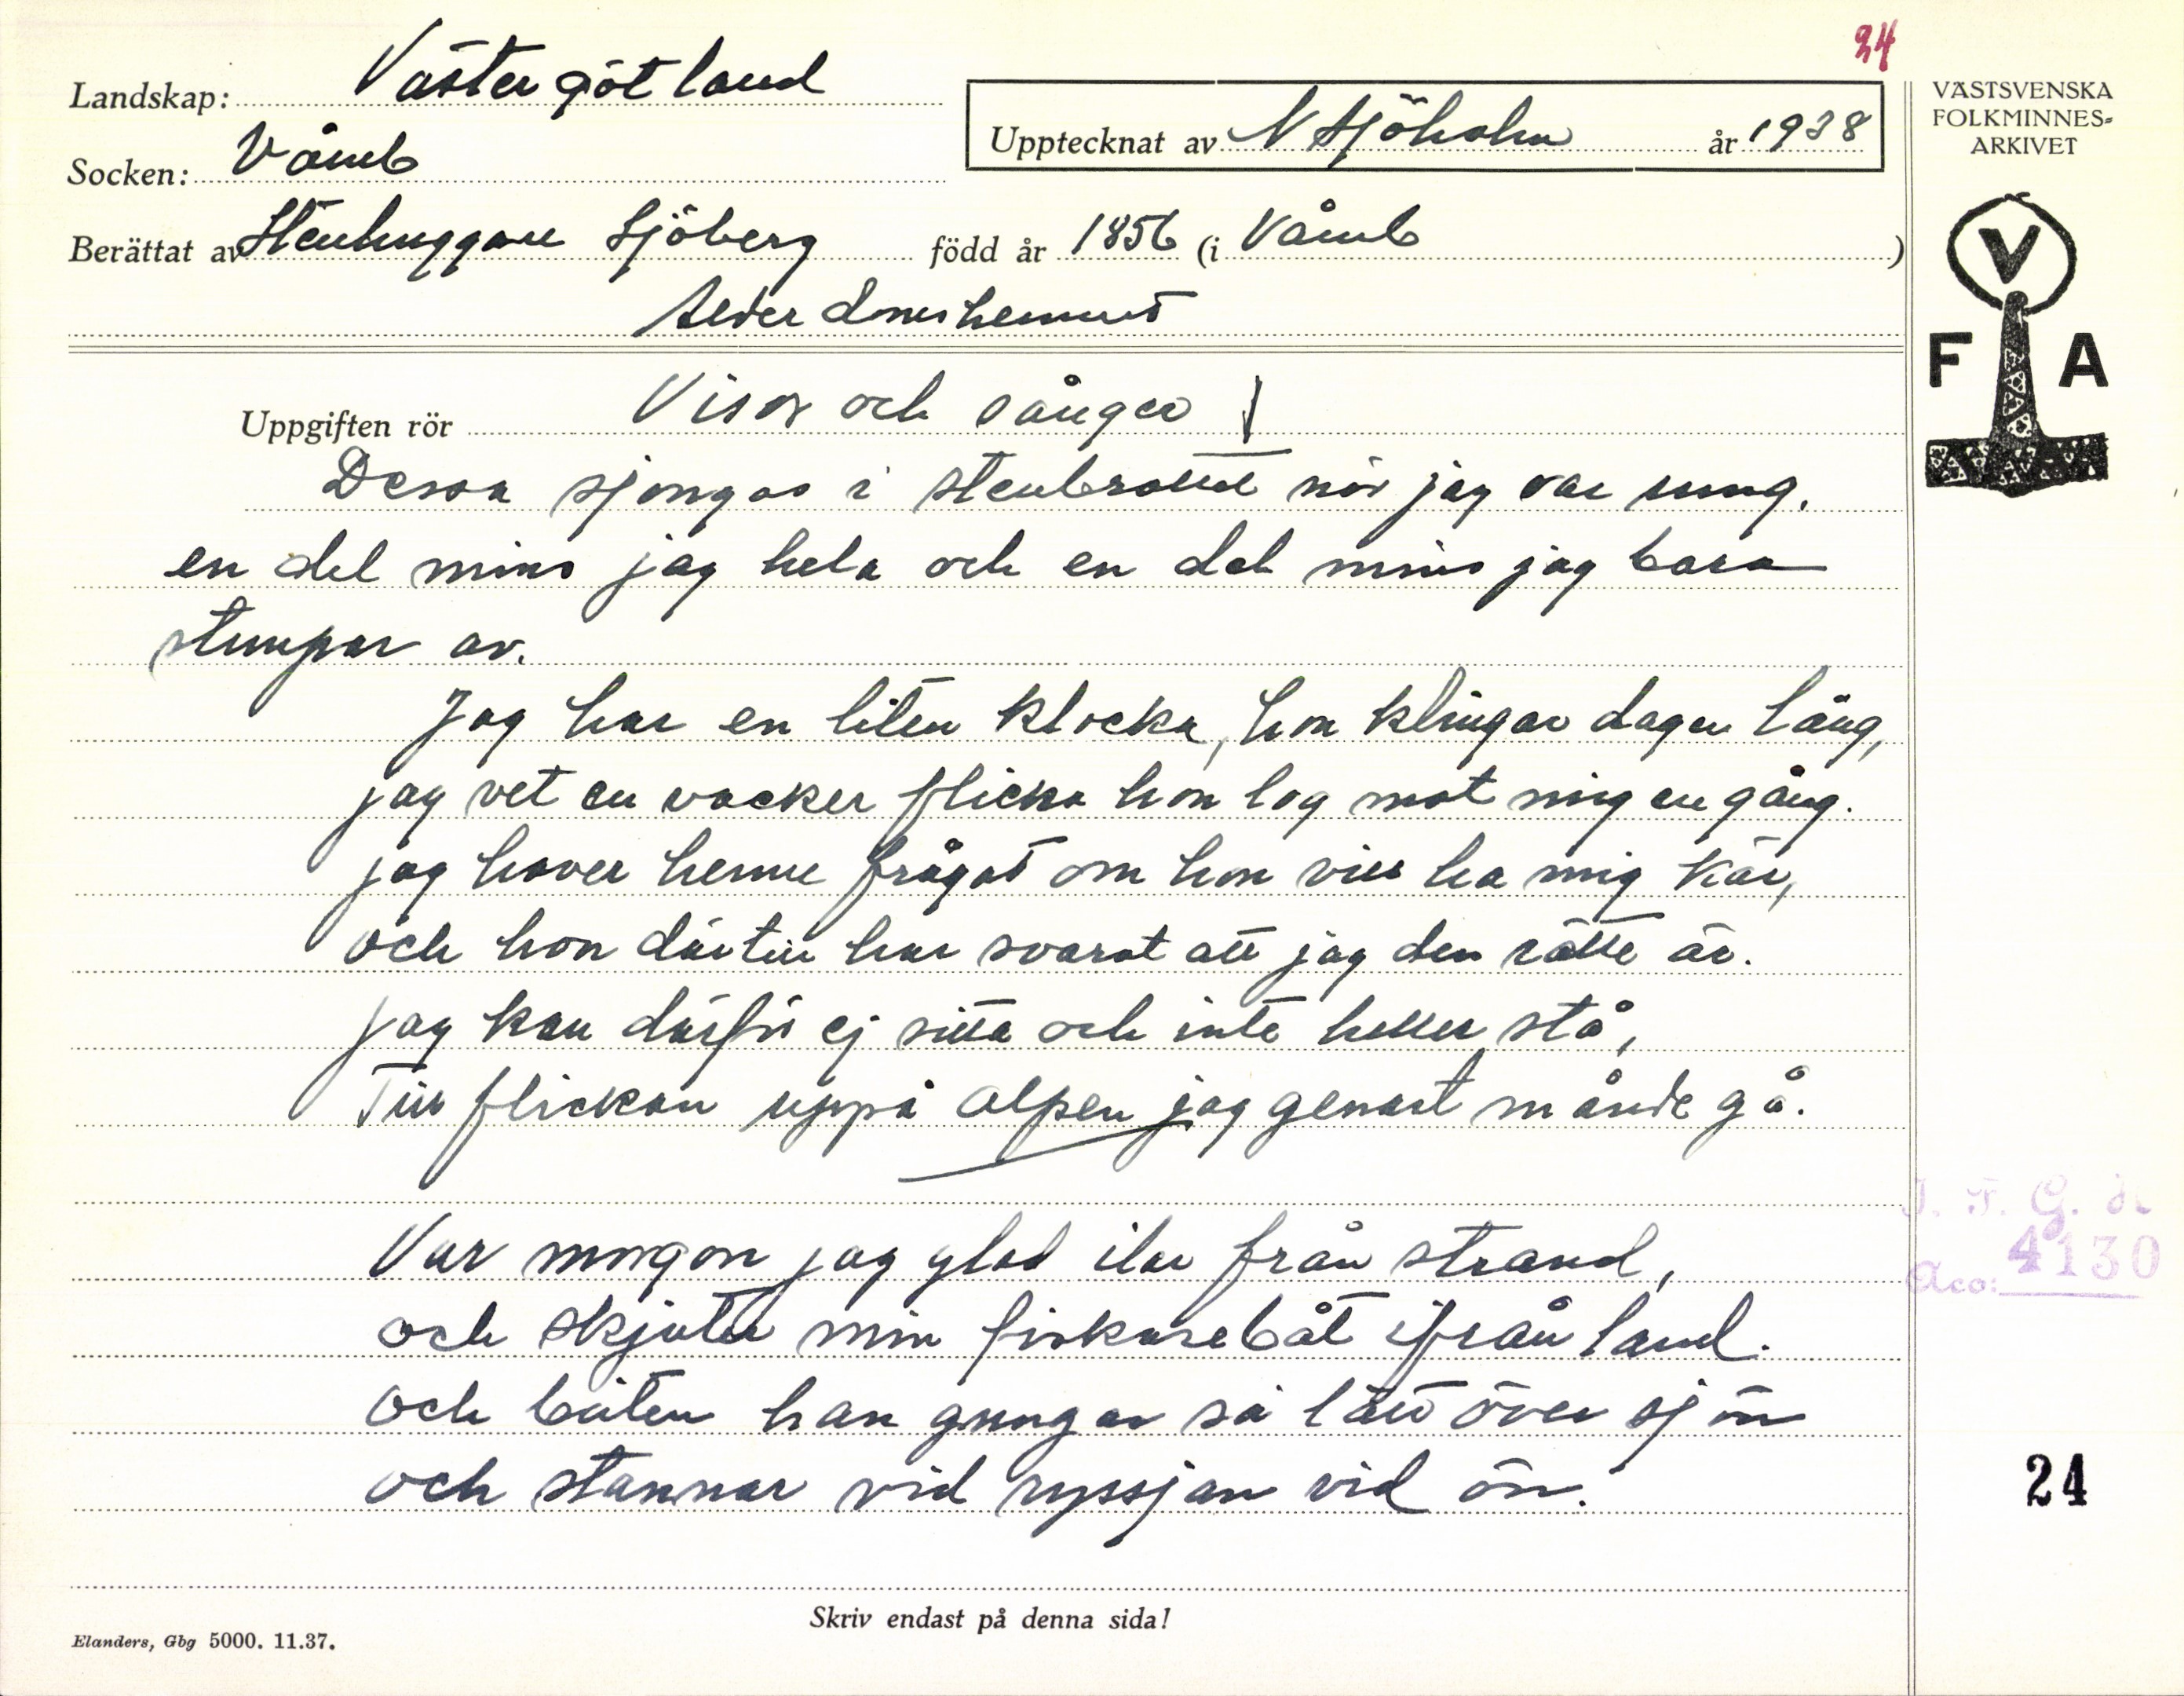 34
Landskap: Västergötland
Socken: Våmb
Upptecknat av N Sjöholm år 1938
Berättat av Stenhuggare Sjöberg född år 1856 (i Våmb )
Ålderdomshemmet
VÄSTSVENSKA
FOLKMINNES-
ARKIVET
V
F A
Uppgiften rör Visor och sånger
Dessa sjöngos i stenbrottet när jag var ung,
en del mins jag hela och en del mins jag bara
stumpar av.
Jag har en liten klocka, hon klingar dagen lång,
jag vet en vacker flicka hon log mot mig en gång.
jag haver henne frågat om hon vill ha mig kär,
och hon därtill har svarat att jag den rätte är.
Jag kan därför ej sitta och inte heller stå,
Till flickan uppå alpen jag genast månde gå.
Var morgon jag glad ilar från strand,
och skjuter min fiskarebåt ifrån land.
och båten han gungar så lätt över sjön
och stannar vid ryssjan vid ön.
I. F. G. H
Acc: 4130
24
Skriv endast på denna sida!
Elanders, Gbg 5000. 11.37.